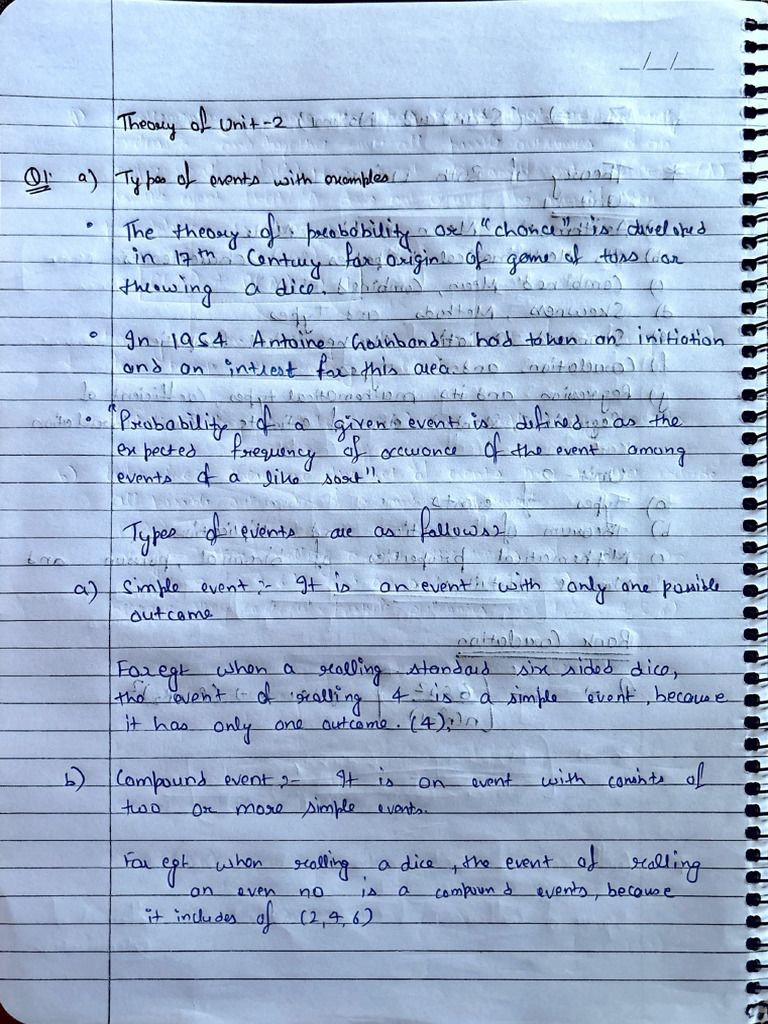 __/__/__
Theory of Unit-2
Q1. a) Types of events with examples
• The theory of probability or "chance" is developed
in 17th Century for origin of game of toss or
throwing a dice.
• In 1954 Antoine Gournband had taken an initiation
and an intrest for this area
• "Probability of a given event is defined as the
expected frequency of occurance of the event among
events of a like sort".
Types of events are as follows:
a) Simple event :- It is an event with only one possible
outcome
For eg: when a rolling standard six sided dice,
the event of rolling 4 is a simple event, because
it has only one outcome. (4).
b) Compound event :- It is an event with consists of
two or more simple events.
For eg: when rolling a dice, the event of rolling
an even no is a compound events, because
it includes of (2,4,6)